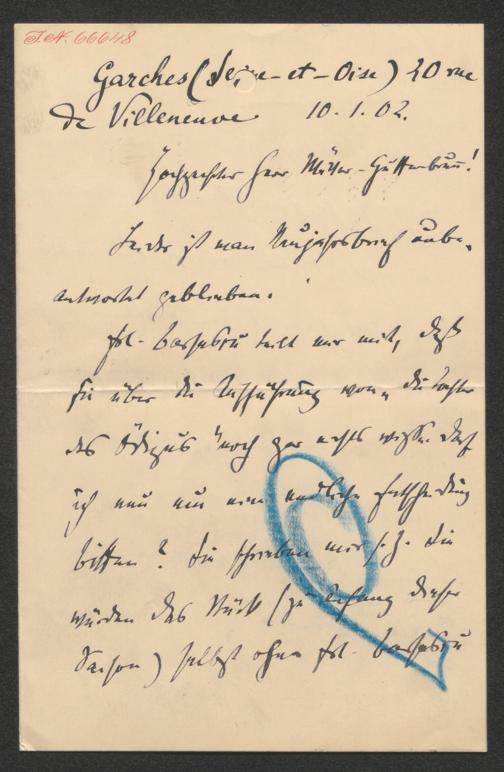 I.N. 66648
Garches (Seine-et-Oise) 20 rue
de Villeneuve 10.1.02.
Hochgeehrter Herr Müller-Guttenbrunn!
Leider ist mein Neujahrsbrief unbe-
antwortet geblieben.
Frl. Barsescu teilt mir mit, daß
sie über die Aufführung von „die Tochter
des Ödipus" noch gar nichts wisse. Darf
ich nun um eine endliche Entscheidung
bitten? Sie schrieben mir s. Z. Sie
würden das Stück (zu Anfang dieser
Saison) selbst ohne Frl. Barsescu